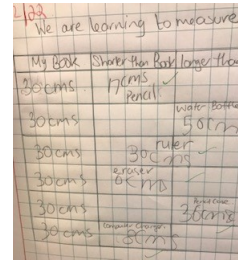 We are learning to measure
My Book Shorter than Book longer than
30cms 17cms
Pencils
water Bottle
30cms 50cm
ruler
30cms 30cms
eraser
30cms 6cms
Pencil Case
30cms 36cms
Computer Charger
30cms 8cms